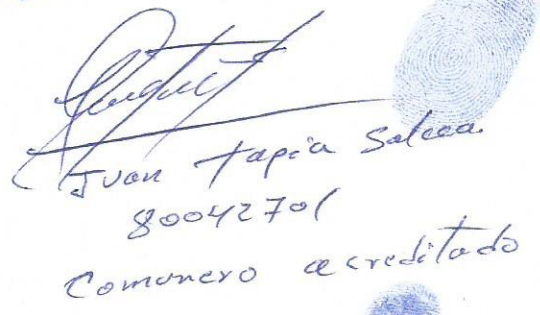 Juan Tapia Salcca
80042701
Comunero acreditado